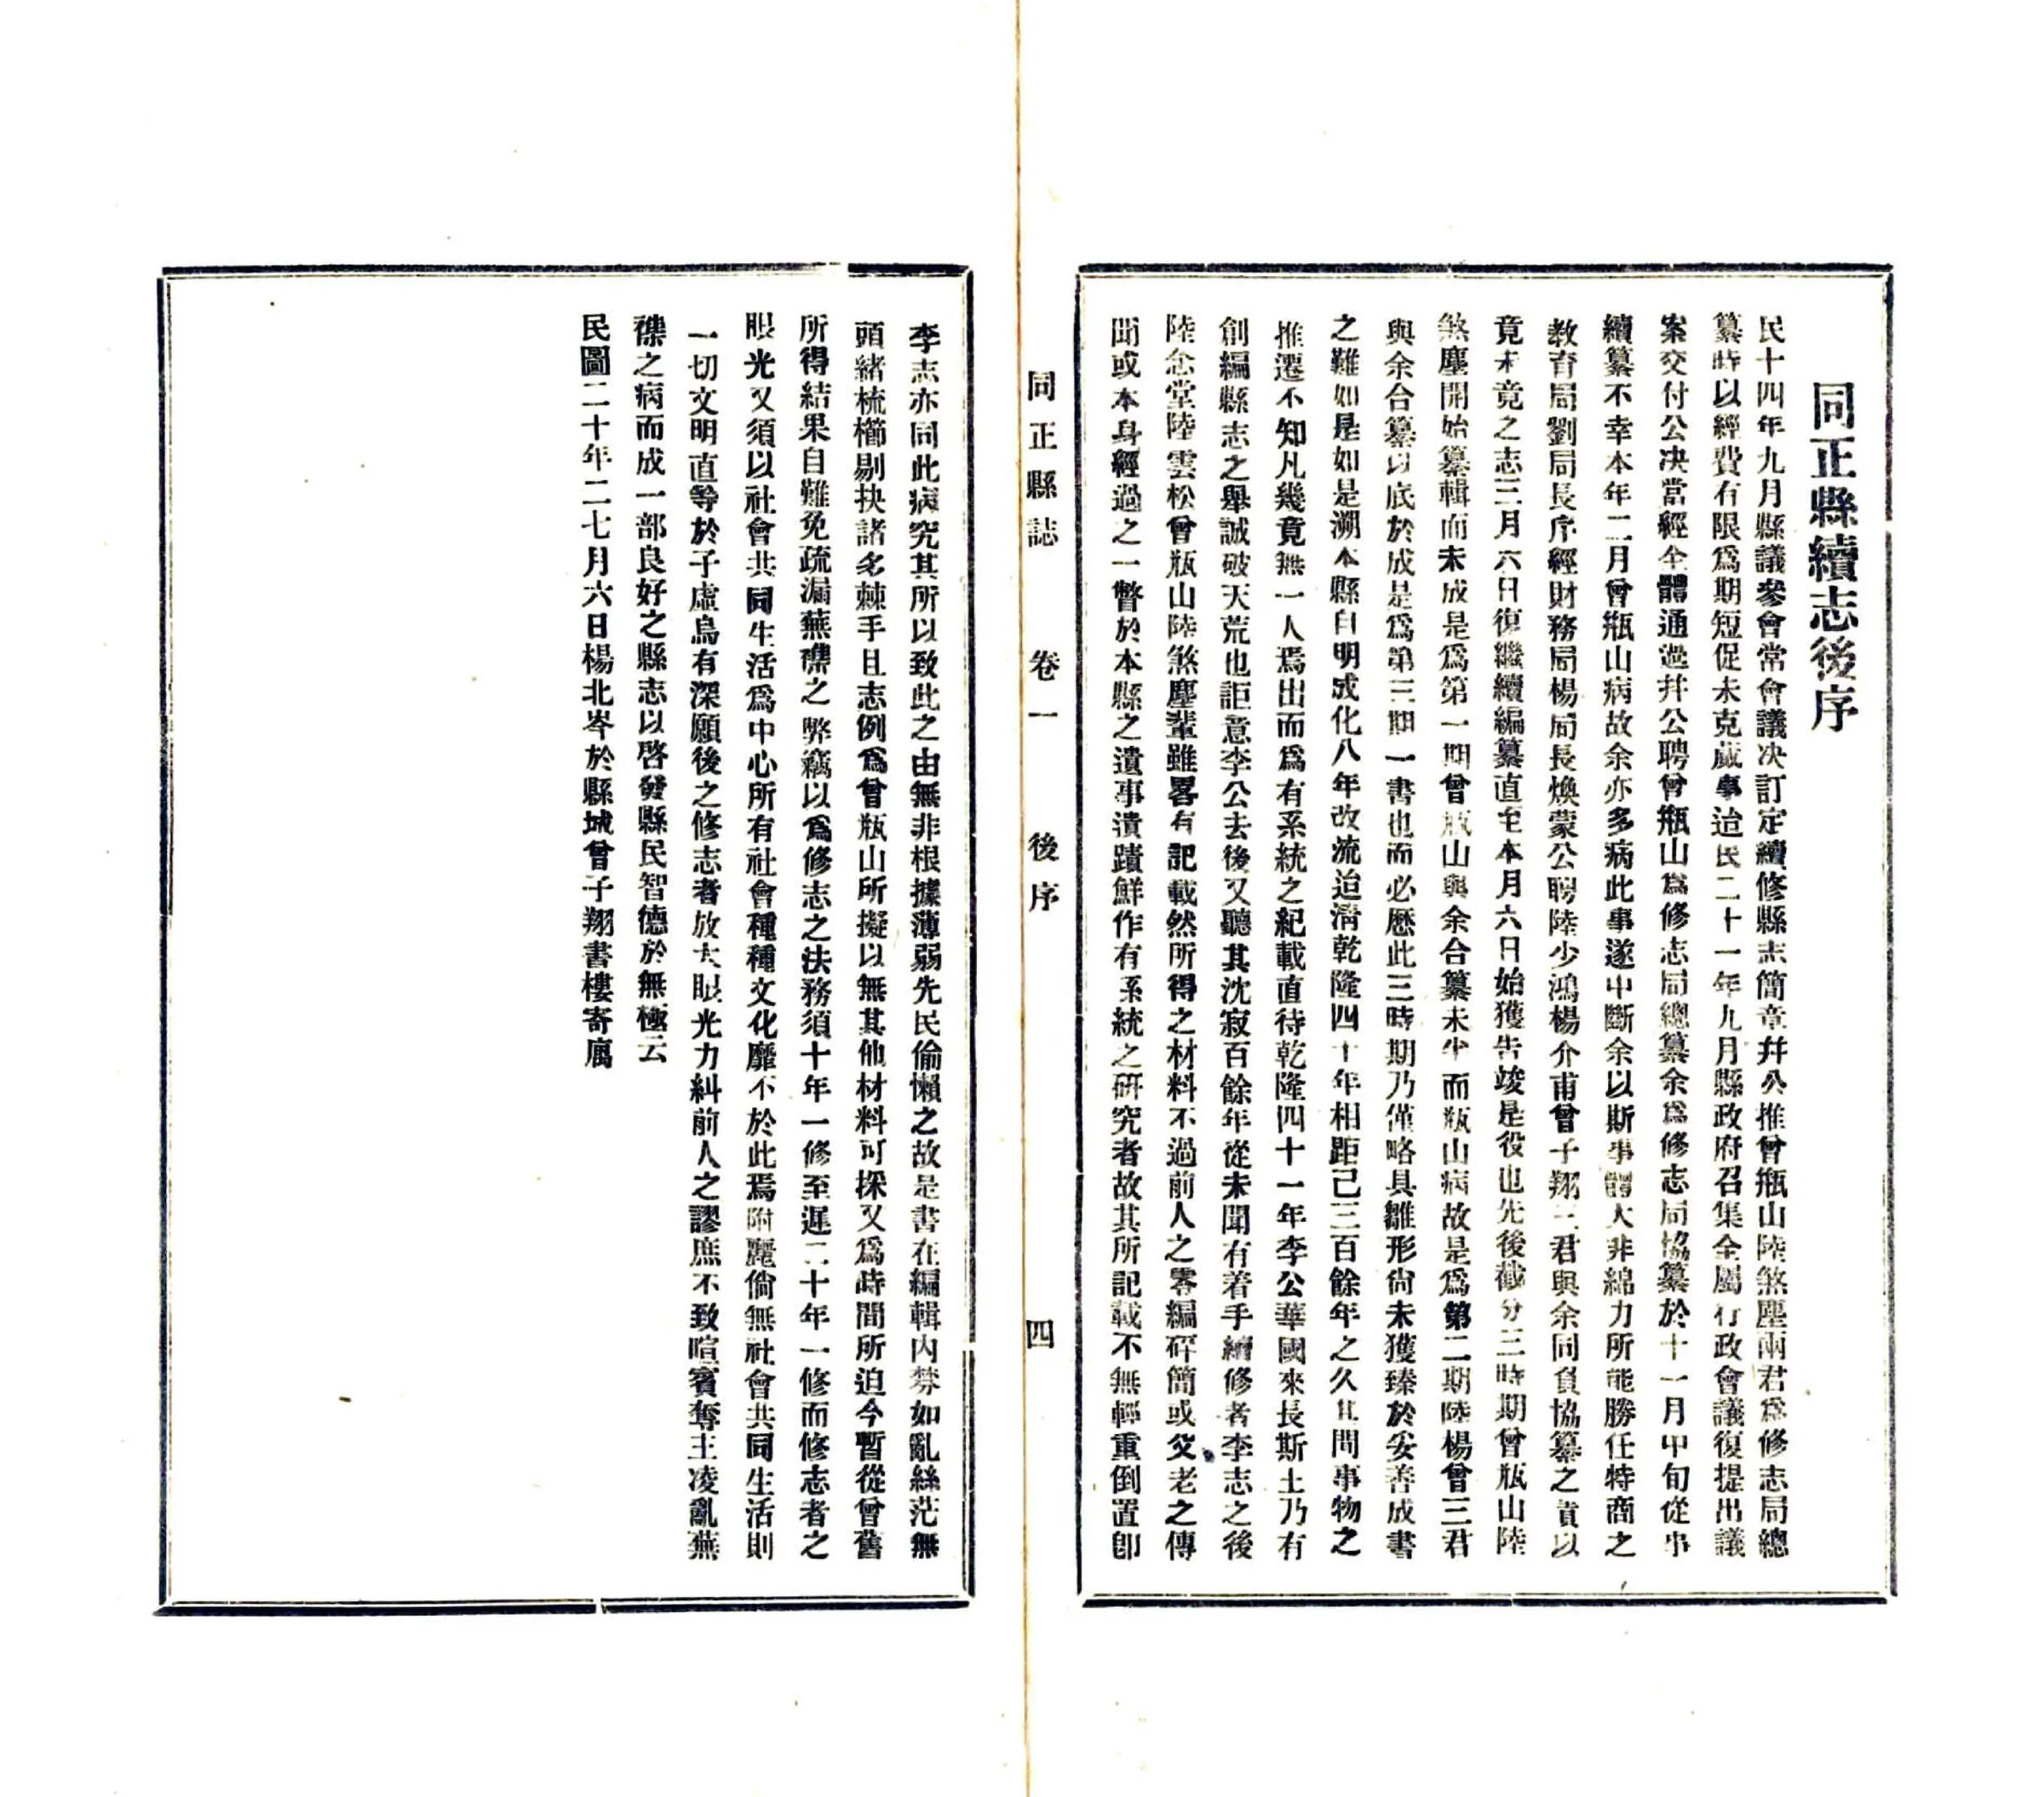 同正縣續志後序
民十四年九月縣議參會常會議决訂定續修縣志簡章幷公推曾瓶山陸煞塵兩君爲修志局總
纂時以經費有限爲期短促未克蕆事迨民二十一年九月縣政府召集全屬行政會議復提出議
案交付公决當經全體通過幷公聘曾瓶山爲修志局總纂余爲修志局協纂於十一月中旬從事
續纂不幸本年二月曾瓶山病故余亦多病此事遂中斷余以斯事體大非綿力所能勝任特商之
教育局劉局長序經財務局楊局長煥蒙公聘陸少鴻楊介甫曾子翔三君與余同負協纂之責以
竟未竟之志三月六日復繼續編纂直至本月六日始獲吿竣是役也先後截分三時期曾瓶山陸
煞塵開始纂輯而未成是爲第一期曾瓶山與余合纂未半而瓶山病故是爲第二期陸楊曾三君
與余合纂以底於成是爲第三期一書也而必歷此三時期乃僅略具雛形尙未獲臻於妥善成書
之難如是如是溯本縣自明成化八年改流迨淸乾隆四十年相距已三百餘年之久其間事物之
推遷不知凡幾竟無一人焉出而爲有系統之紀載直待乾隆四十一年李公華國來長斯土乃有
創編縣志之舉誠破天荒也詎意李公去後又聽其沈寂百餘年從未聞有着手續修者李志之後
陸念堂陸雲松曾瓶山陸煞塵輩雖畧有記載然所得之材料不過前人之零編碎簡或父老之傳
聞或本身經過之一瞥於本縣之遺事潰蹟鮮作有系統之研究者故其所記載不無輕重倒置卽
同正縣誌　卷一　後序　四
李志亦同此病究其所以致此之由無非根據薄弱先民偷懶之故是書在編輯內棼如亂絲茫無
頭緖梳櫛剔抉諸多棘手且志例爲曾瓶山所擬以無其他材料可採又爲時間所迫今暫從曾舊
所得結果自難免疏漏蕪襍之弊竊以爲修志之法務須十年一修至遲二十年一修而修志者之
眼光又須以社會共同生活爲中心所有社會種種文化靡不於此焉附麗倘無社會共同生活則
一切文明直等於子虛烏有深願後之修志者放大眼光力糾前人之謬庶不致喧賓奪主凌亂蕪
襍之病而成一部良好之縣志以啓發縣民智德於無極云
民國二十年二七月六日楊北岑於縣城曾子翔書樓寄廎